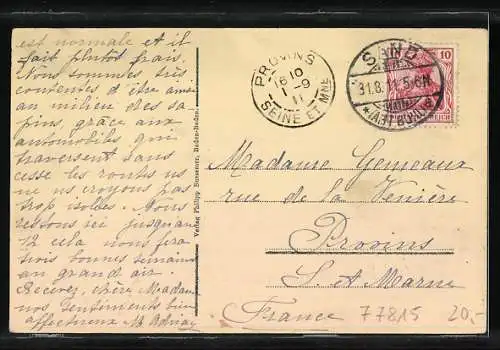 est normale et il
fait plutôt frais.
Nous sommes très
contentes d'être ainsi
au milieu des sa-
pins, grâce aux
automobiles qui
traversent sans
cesse les routes
ne nous croyons pas
trop isolées. Nous
restons ici jusqu'au
12 cela nous fera
trois bonnes semaines
au grand air.
Recevez, chère Madame
nos sentiments bien
affectueux
Verlag Philipp Bussemer, Baden-Baden.
PROVINS
16 10
1 -9
11
SEINE ET MNE
SAND
31.8.11. 5-6N.
* (AMT BÜHL) *
10
REICH
Madame Gemeaux
rue de la Venière
Provins
S. et Marne
France
77815 20,-